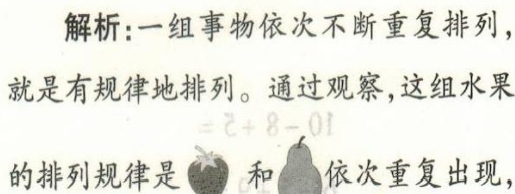 解析:一组事物依次不断重复排列,
就是有规律地排列。通过观察,这组水果
10-8+5=
的排列规律是 和 依次重复出现,